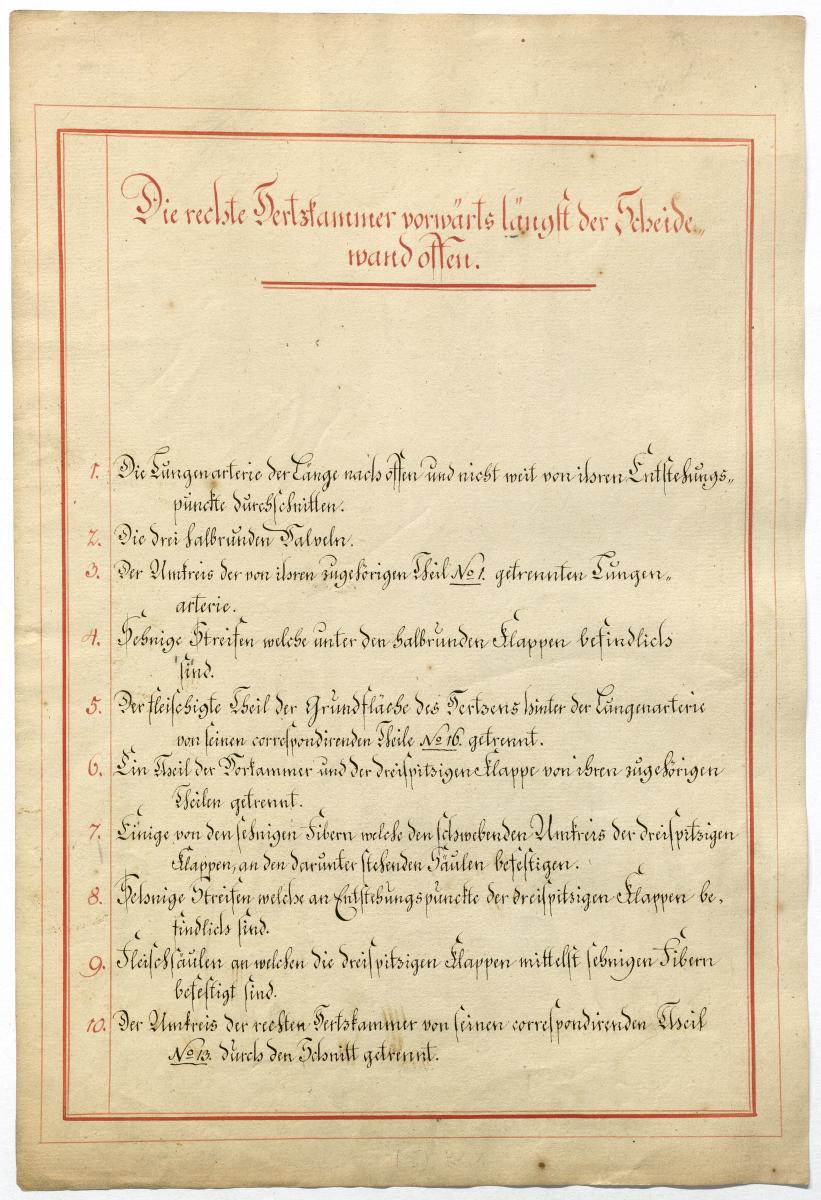 Die rechte Hertzkammer vorwärts längst der Scheide„
wand offen.
1. Die Lungenarterie der Länge nach offen und nicht weit von ihren Entstehungs„
punckte durchschnitten.
2. Die drei halbrunden Valveln.
3. Der Umkreis der von ihren zugehörigen Theil No 1. getrennten Lungen„
arterie.
4. Sehnige Streifen welche unter den halbrunden Klappen befindlich
sind.
5. Der fleischigte Theil der Grundfläche des Hertzens hinter der Lungenarterie
von seinen correspondirenden Theile No 16. getrennt.
6. Ein Theil der Vorkammer und der dreispitzigen Klappe von ihren zugehörigen
Theilen getrennt.
7. Einige von den sehnigen Fibern welche den schwebenden Umkreis der dreispitzigen
Klappen, an den darunter stehenden Säulen befestigen.
8. Sehnige Streifen welche an Entstehungspunckte der dreispitzigen Klappen be„
findlich sind.
9. Fleischsäulen an welchen die dreispitzigen Klappen mittelst sehnigen Fibern
befestigt sind.
10. Der Umkreis der rechten Hertzkammer von seinen correspondirenden Theil
No 13. durch den Schnitt getrennt.